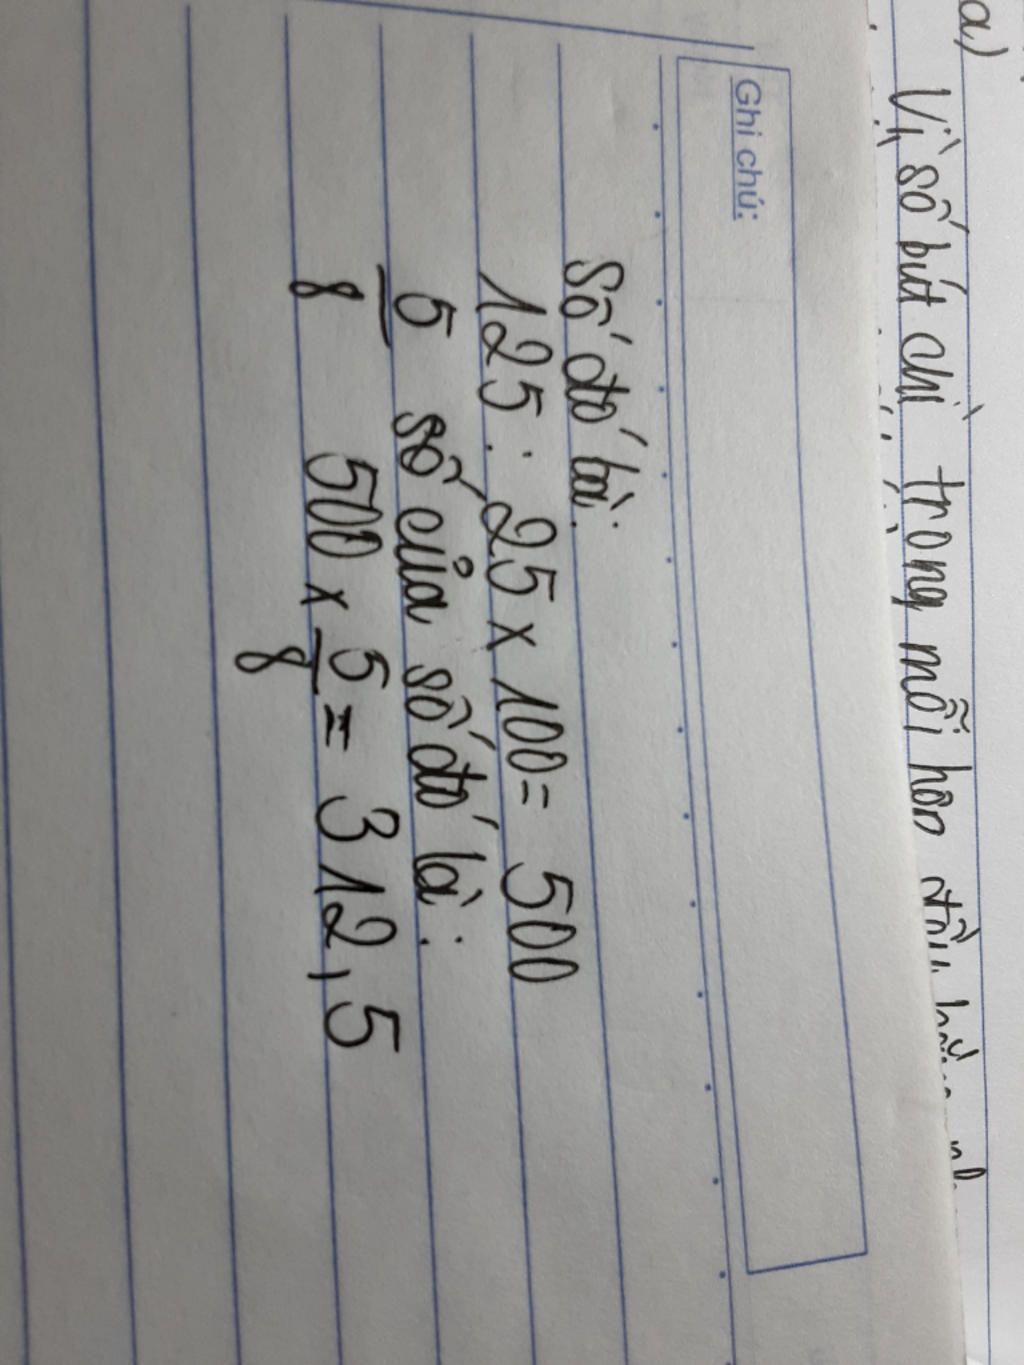 a)
Vì số bút chì trong mỗi hộp đều
Ghi chú:
Số đó là:
125 : 25 x 100 = 500
5/8 số của số đó là:
500 x 5/8 = 312,5